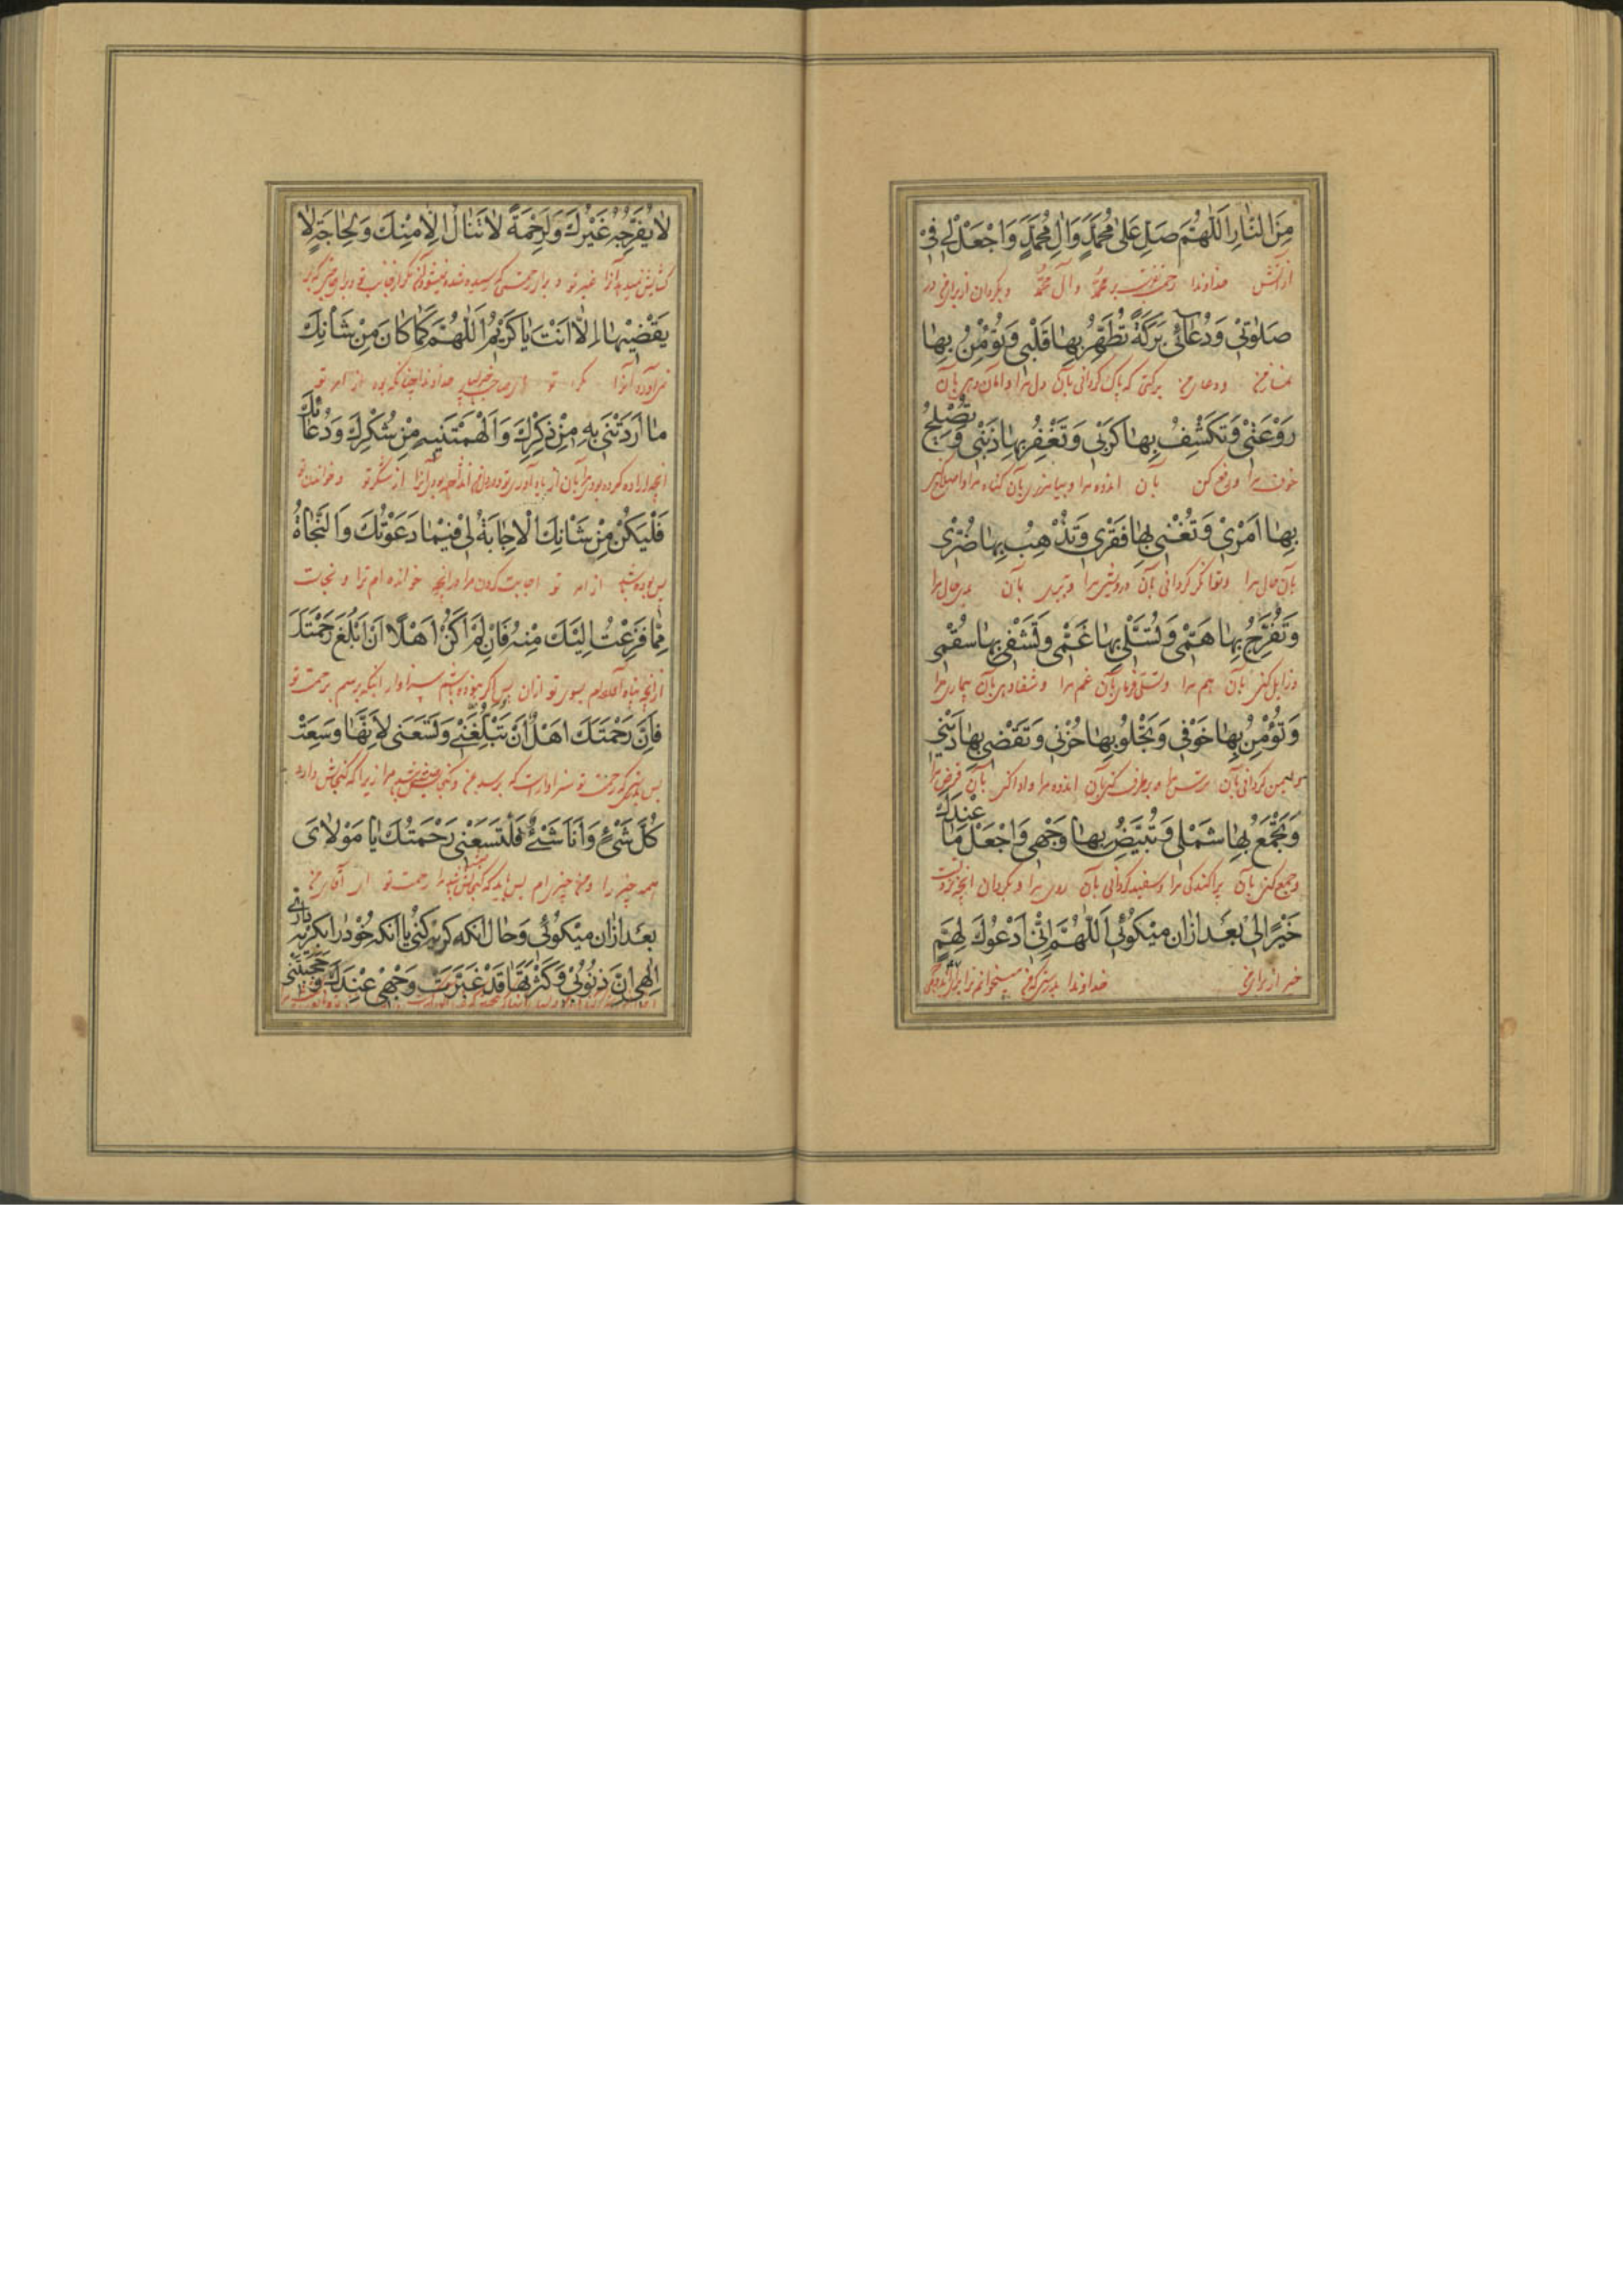 مِنَ النّارِ اَللّٰهُمَّ صَلِّ عَلىٰ مُحَمَّدٍ وَاٰلِ مُحَمَّدٍ وَاجْعَلْ لي في
ازآتش خداوندا رحمت بفرست بر محمّد وآل محمّد وبگردان از برای من در
صَلوٰتي وَدُعٰائي بَرَكَةً تُطَهِّرُ بِهٰا قَلْبي وَتُؤْمِنُ بِهٰا
نماز من ودعای من برکتی که پاک گردانی بآن دل مرا وامان دهی بآن
رَوْعَتي وَتَكْشِفُ بِهٰا كَرْبي وَتَغْفِرُ بِهٰا ذَنْبي وَتُصْلِحُ
خوف مرا ورفع کنی بآن اندوه مرا وبیامرزی بآن گناه مرا واصلاح کنی
بِهٰا اَمْري وَتُغْني بِهٰا فَقْري وَتُذْهِبُ بِهٰا ضُرّي
بآن حال مرا وتوانگر گردانی بآن درویشی مرا وببری بآن بدی حال مرا
وَتُفَرِّجُ بِهٰا هَمّي وَتُسَلّي بِهٰا غَمّي وَتَشْفي بِهٰا سُقْمي
وزایل کنی بآن هم مرا وتسلی فرمائی بآن غم مرا وشفا دهی بآن بیماری مرا
وَتُؤْمِنُ بِهٰا خَوْفي وَتَجْلُو بِهٰا حُزْني وَتَقْضي بِهٰا دَيْني
وایمن گردانی بآن ترس مرا وبرطرف کنی بآن اندوه مرا وادا کنی بآن قرض مرا
وَتَجْمَعُ بِهٰا شَمْلي وَتُبَيِّضُ بِهٰا وَجْهي وَاجْعَلْ مٰا عِنْدَكَ
وجمع کنی بآن پراکندگی مرا وسفید گردانی بآن روی مرا وبگردان آنچه نزد تست
خَيْرًا لي بَعْد ازان ميكوئي اَللّٰهُمَّ اِنّي اَدْعُوكَ لِهَمٍّ
خیر از برای من خداوندا بدرستی که من میخوانم ترا برای اندوهی
لاٰ يُفَرِّجُهُ غَيْرُكَ وَلِرَحْمَةٍ لاٰ تُنٰالُ اِلاّ مِنْكَ وَلِحٰاجَةٍ لاٰ
کشایش نمیدهد آنرا غیر تو و برای رحمتی که رسیده نمیشود مگر از جانب تو وبرای حاجتی که بر
يَقْضيهٰا اِلاّٰ اَنْتَ يٰا كَريمُ اَللّٰهُمَّ كَمٰا كٰانَ مِنْ شَأْنِكَ
نمی آورد آنرا مگر تو خداوندا چنانکه بود از امر تو
مٰا اَرَدْتَني بِهِ مِنْ ذِكْرِكَ وَاَلْهَمْتَنيهِ مِنْ شُكْرِكَ وَدُعٰائِكَ
از شکر تو وخواندن تو
فَلْيَكُنْ مِنْ شَأْنِكَ الْاِجٰابَةُ لي فيمٰا دَعَوْتُكَ وَالنَّجٰاةُ
پس بوده باشد از امر تو اجابت کردن مرا در آنچه خوانده ام ترا ونجات
مِمّٰا فَزِعْتُ اِلَيْكَ مِنْهُ فَاِنْ لَمْ اَكُنْ اَهْلًا اَنْ اَبْلُغَ رَحْمَتَكَ
از آنچه پناه آورده ام بسوی تو ازان پس اگر نبوده باشم سزاوار اینکه برسم برحمت تو
فَاِنَّ رَحْمَتَكَ اَهْلٌ اَنْ تَبْلُغَني وَتَسَعَني لِاَنَّهٰا وَسِعَتْ
پس بدرستی که رحمت تو سزاوارست که برسد بمن مرا زیرا که گنجایش دارد
كُلَّ شَيْءٍ وَاَنَا شَيْءٌ فَلْتَسَعْني رَحْمَتُكَ يٰا مَوْلاٰيَ
همه چیز را ومن چیزی ام پس باید که مرا رحمت تو ای آقای من
بعد ازان ميكوئي وحال انكه كريه كني يا انكه خود را بكريه داري
اِلٰهي اِنَّ ذُنُوبي وَكَثْرَتَهٰا قَدْ غَبَّرَتْ وَجْهي عِنْدَكَ وَحَجَبَتْني